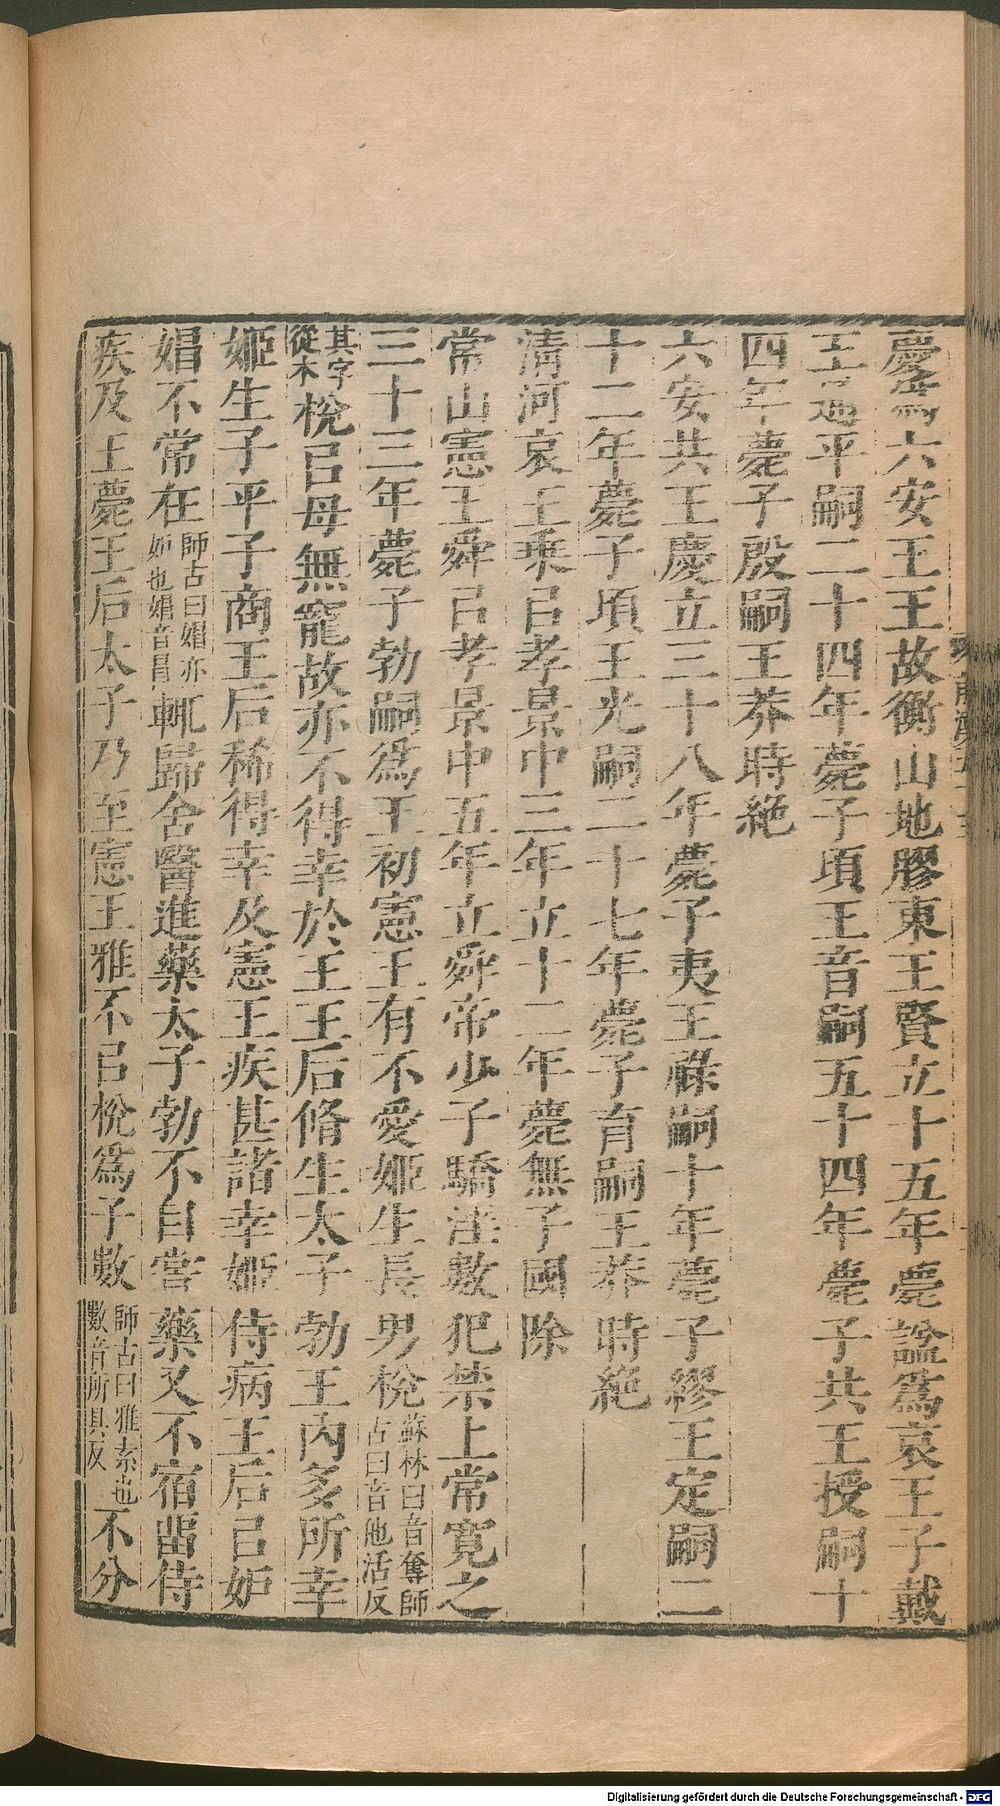 慶爲六安王王故衡山地膠東王賢立十五年薨諡爲哀王子戴
王通平嗣二十四年薨子頃王音嗣五十四年薨子共王授嗣十
四年薨子殷嗣王莽時絶
六安共王慶立三十八年薨子夷王祿嗣十年薨子繆王定嗣二
十二年薨子頃王光嗣二十七年薨子育嗣王莽時絶
清河哀王乘㠯孝景中三年立十二年薨無子國除
常山憲王舜㠯孝景中五年立舜帝少子驕淫數犯禁上常寛之
三十三年薨子勃嗣爲王初憲王有不愛姬生長男梲蘇林曰音奪師古曰音他活反
其字從木梲㠯母無寵故亦不得幸於王王后脩生太子勃王内多所幸
姬生子平子商王后稀得幸及憲王疾甚諸幸姬侍病王后㠯妒
娼不常在師古曰娼亦妒也娼音冒輒歸舍醫進藥太子勃不自嘗藥又不宿畱侍
疾及王薨王后太子乃至憲王雅不㠯梲爲子數師古曰雅素也數音所具反不分
Digitalisierung gefördert durch die Deutsche Forschungsgemeinschaft - DFG